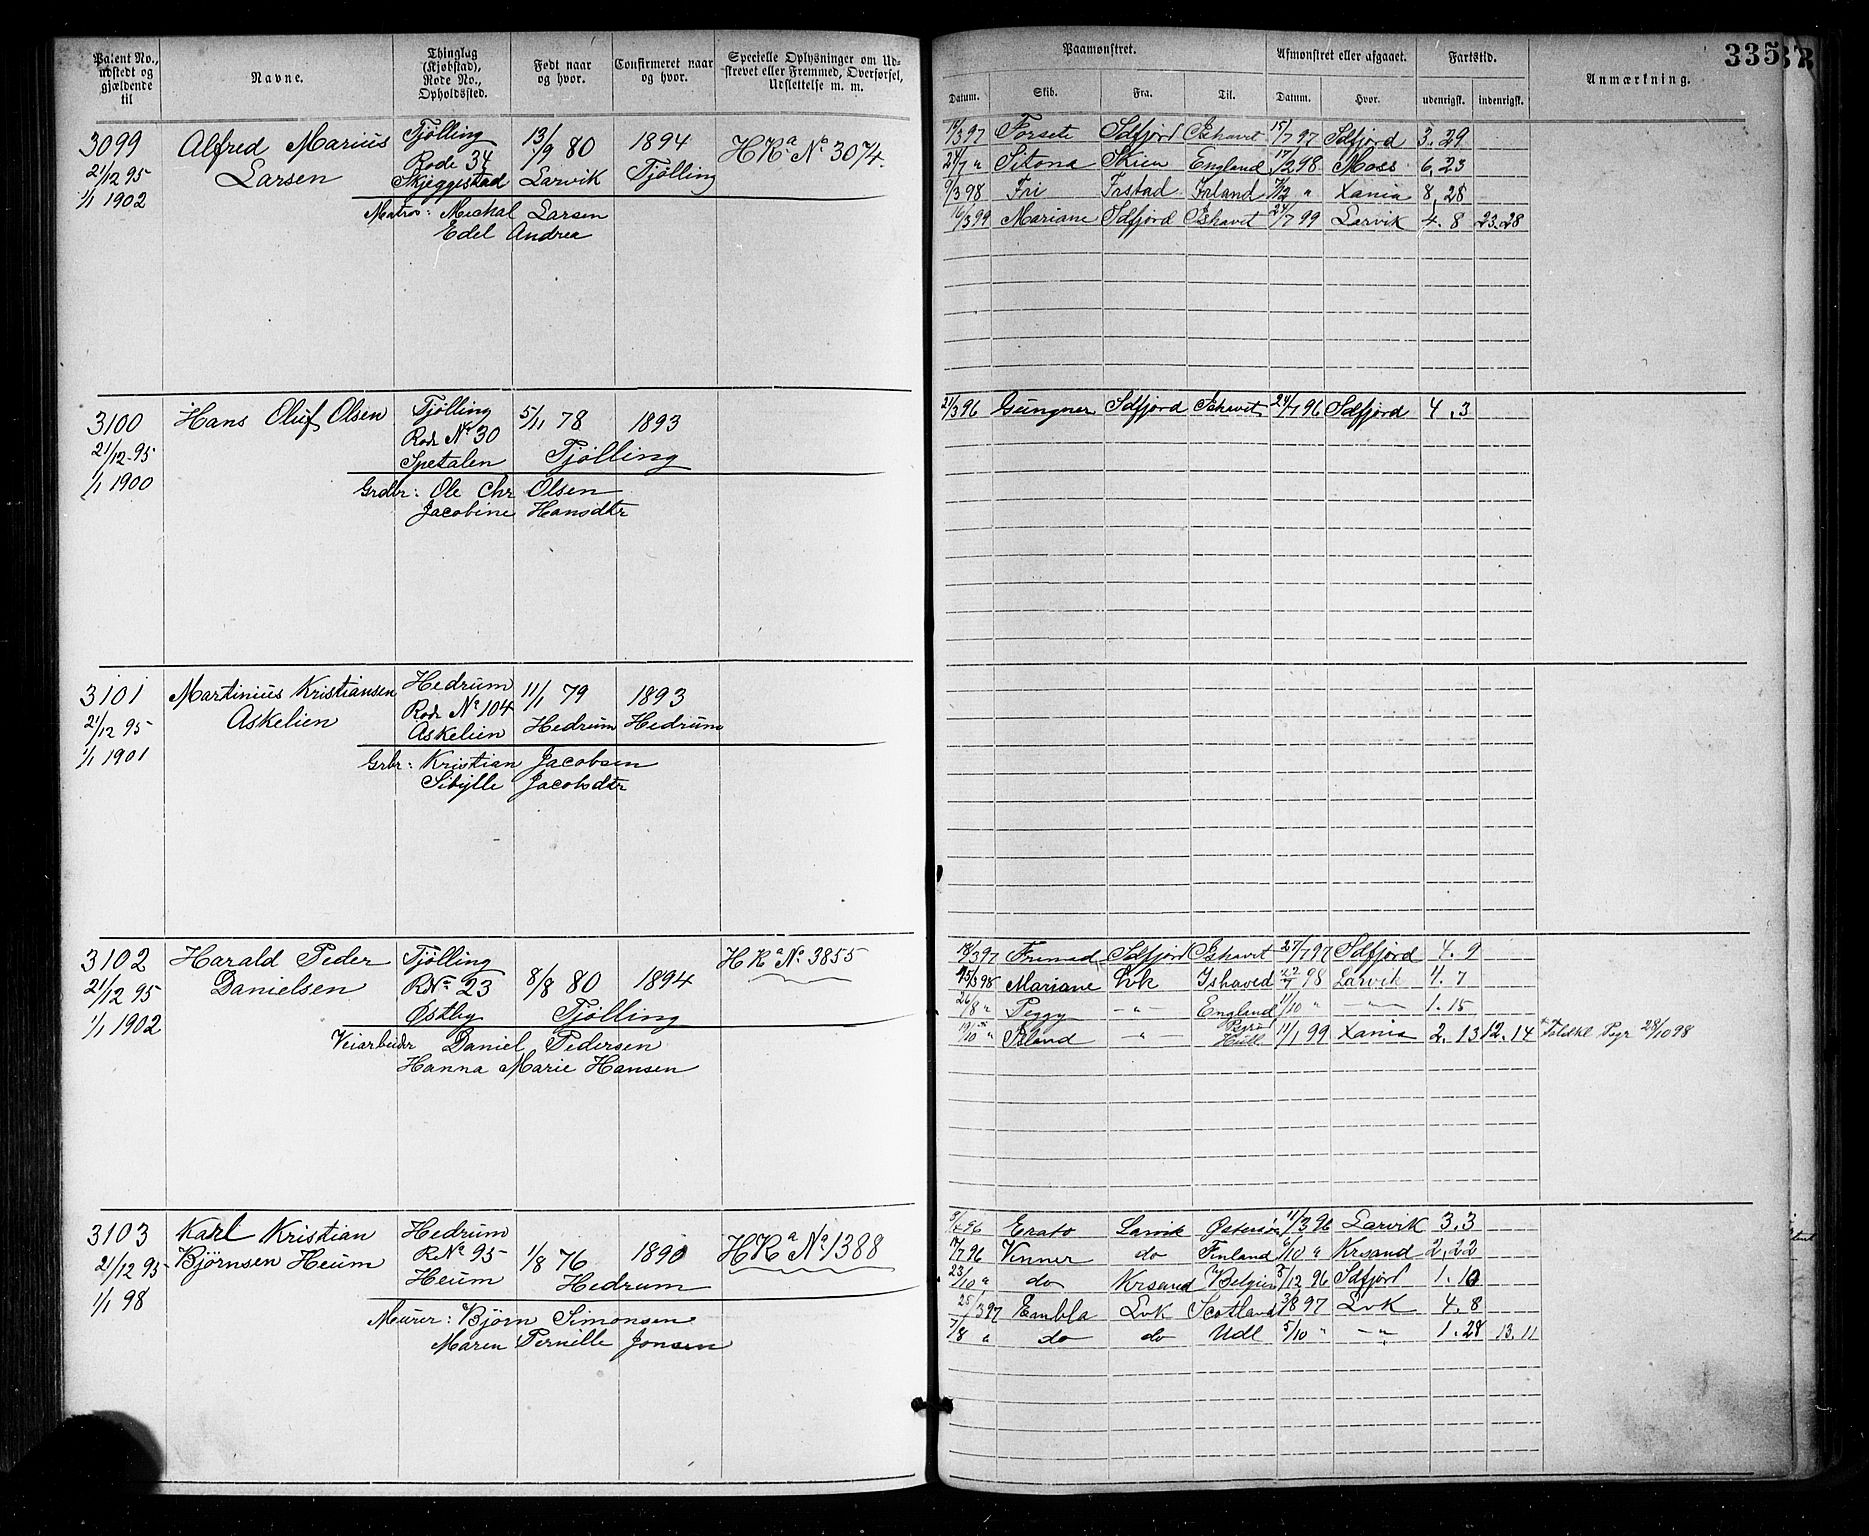 Patent No., udstedt og gjældende til
Navne.
Thinglag (Kjøbstad), Rode No., Opholdssted.
Født naar og hvor.
Confirmeret naar og hvor.
Specielle Oplysninger om Udskrevet eller Fremmed, Overførsel, Udslettelse m. m.
Paamønstret.
Afmønstret eller afgaaet.
Fartstid.
Anmærkning.
335
Datum. Skib. Fra. Til. Datum. Hvor. udenrigsk. indenrigsk.
3099 Alfred Marius Tjølling 13/9 80 1894 HRa No 3074.
21/12 95 Larsen Rode 34
1/1 1902 Skjeggestad Larvik Tjølling
Matros: Michal Larsen
Edel Andrea
14/3 97 Forsete Sdfjord Ishavet 15/7 97 Sdfjord 3.29
24/7 " Sitona Skien England 17/2 98 Moss 6.23
9/3 98 Fri Irland 7/12 " Xania 8.28
16/3 99 Mariane Sdfjord Ishavet 24/7 99 Larvik 4.8 23.28
3100 Hans Oluf Olsen Tjølling 5/11 78 1893
21/12 95 Rode No 30 Tjølling
1/1 1900 Spetalen
Grdbr: Ole Chr Olsen
Jacobine Hansdtr
21/3 96 Gungner Sdfjord Ishavet 24/7 96 Sdfjord 4.3
3101 Martinius Kristiansen Hedrum 11/1 79 1893
21/12 95 Askelien Rode No 104 Hedrum Hedrum
1/1 1901 Askelien
Grbr: Kristian Jacobsen
Sibylle Jacobsdtr
3102 Harald Peder Tjølling 8/8 80 1894 HRa No 3855
21/12 95 Danielsen RNo 23
1/1 1902 Østby Tjølling
Veiarbeider Daniel Pedersen
Hanna Marie Hansen
18/3 97 Sdfjord Ishavet 27/7 97 Sdfjord 4.9
15/3 98 Mariane Lvk Ishaved 98 Larvik 4.7
26/8 " Peggy —"— England 11/10 " —"— 1.15
19/10 " Island —"— Hull 11/1 99 Xania 2.13 12.14 28/10 98
3103 Karl Kristian Hedrum 1/8 76 1890 HRa No 1388
21/12 95 Bjørnsen Heum RNo 95
1/1 98 Heum Hedrum
Murer: Bjørn Simonsen
Maren Pernille Jonsen
96 Erato Larvik Østersøen 11/3 96 Larvik 3.3
17/7 96 Vinner do Finland /10 " Krsand 2.22
23/10 " do Krsand Belgien 3/12 96 Sdfjord 1.10
25/3 97 Embla Lvk Scotland 3/8 97 Lvk 4.8
7/8 " do do Udl 5/10 " —"— 1.28 13.11